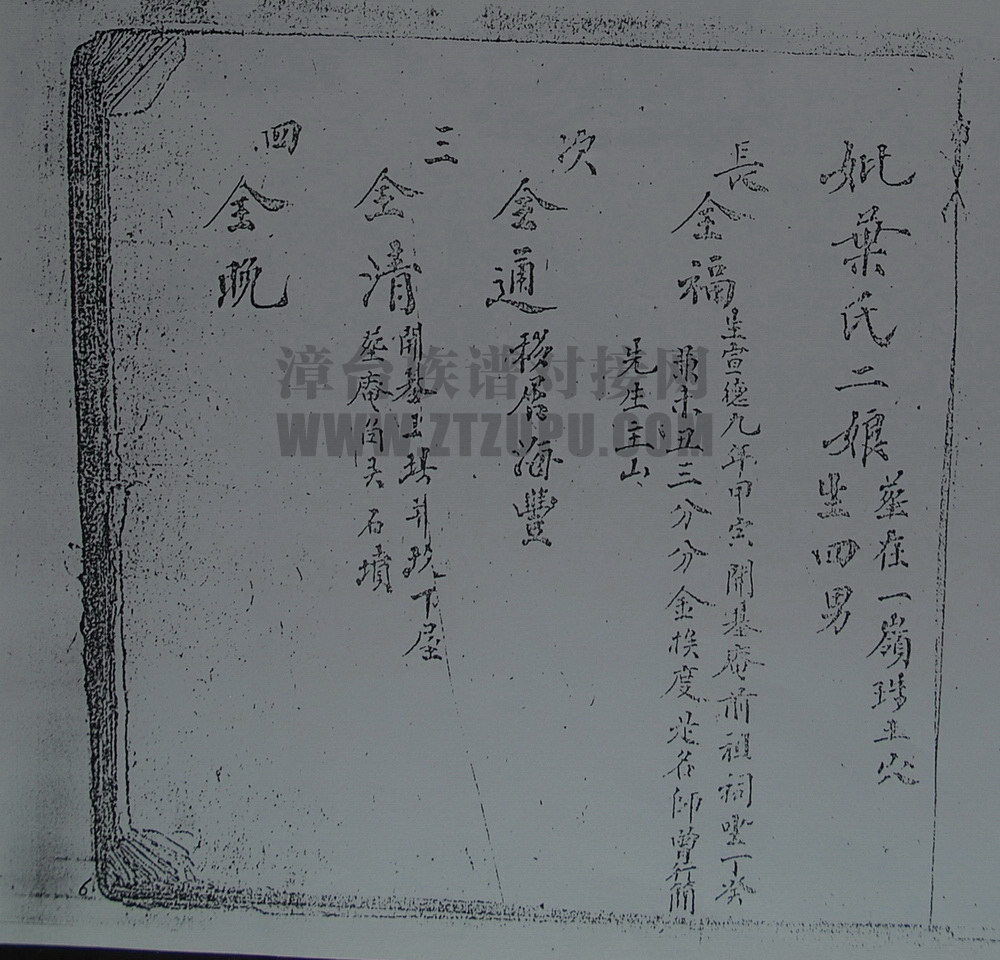 妣葉氏二娘
葬在一嶺珠丑穴
生四男
長
金福
生宣德九年甲寅開基庵前祖祠坐丁癸
兼未丑三分分金挨度北名師曾行簡
先生主山
次
金通
移居海豐
三
金清
開基
井
下屋
葬庵
石墳
四
金晚
漳台族谱对接网
WWW.ZTZUPU.COM
6